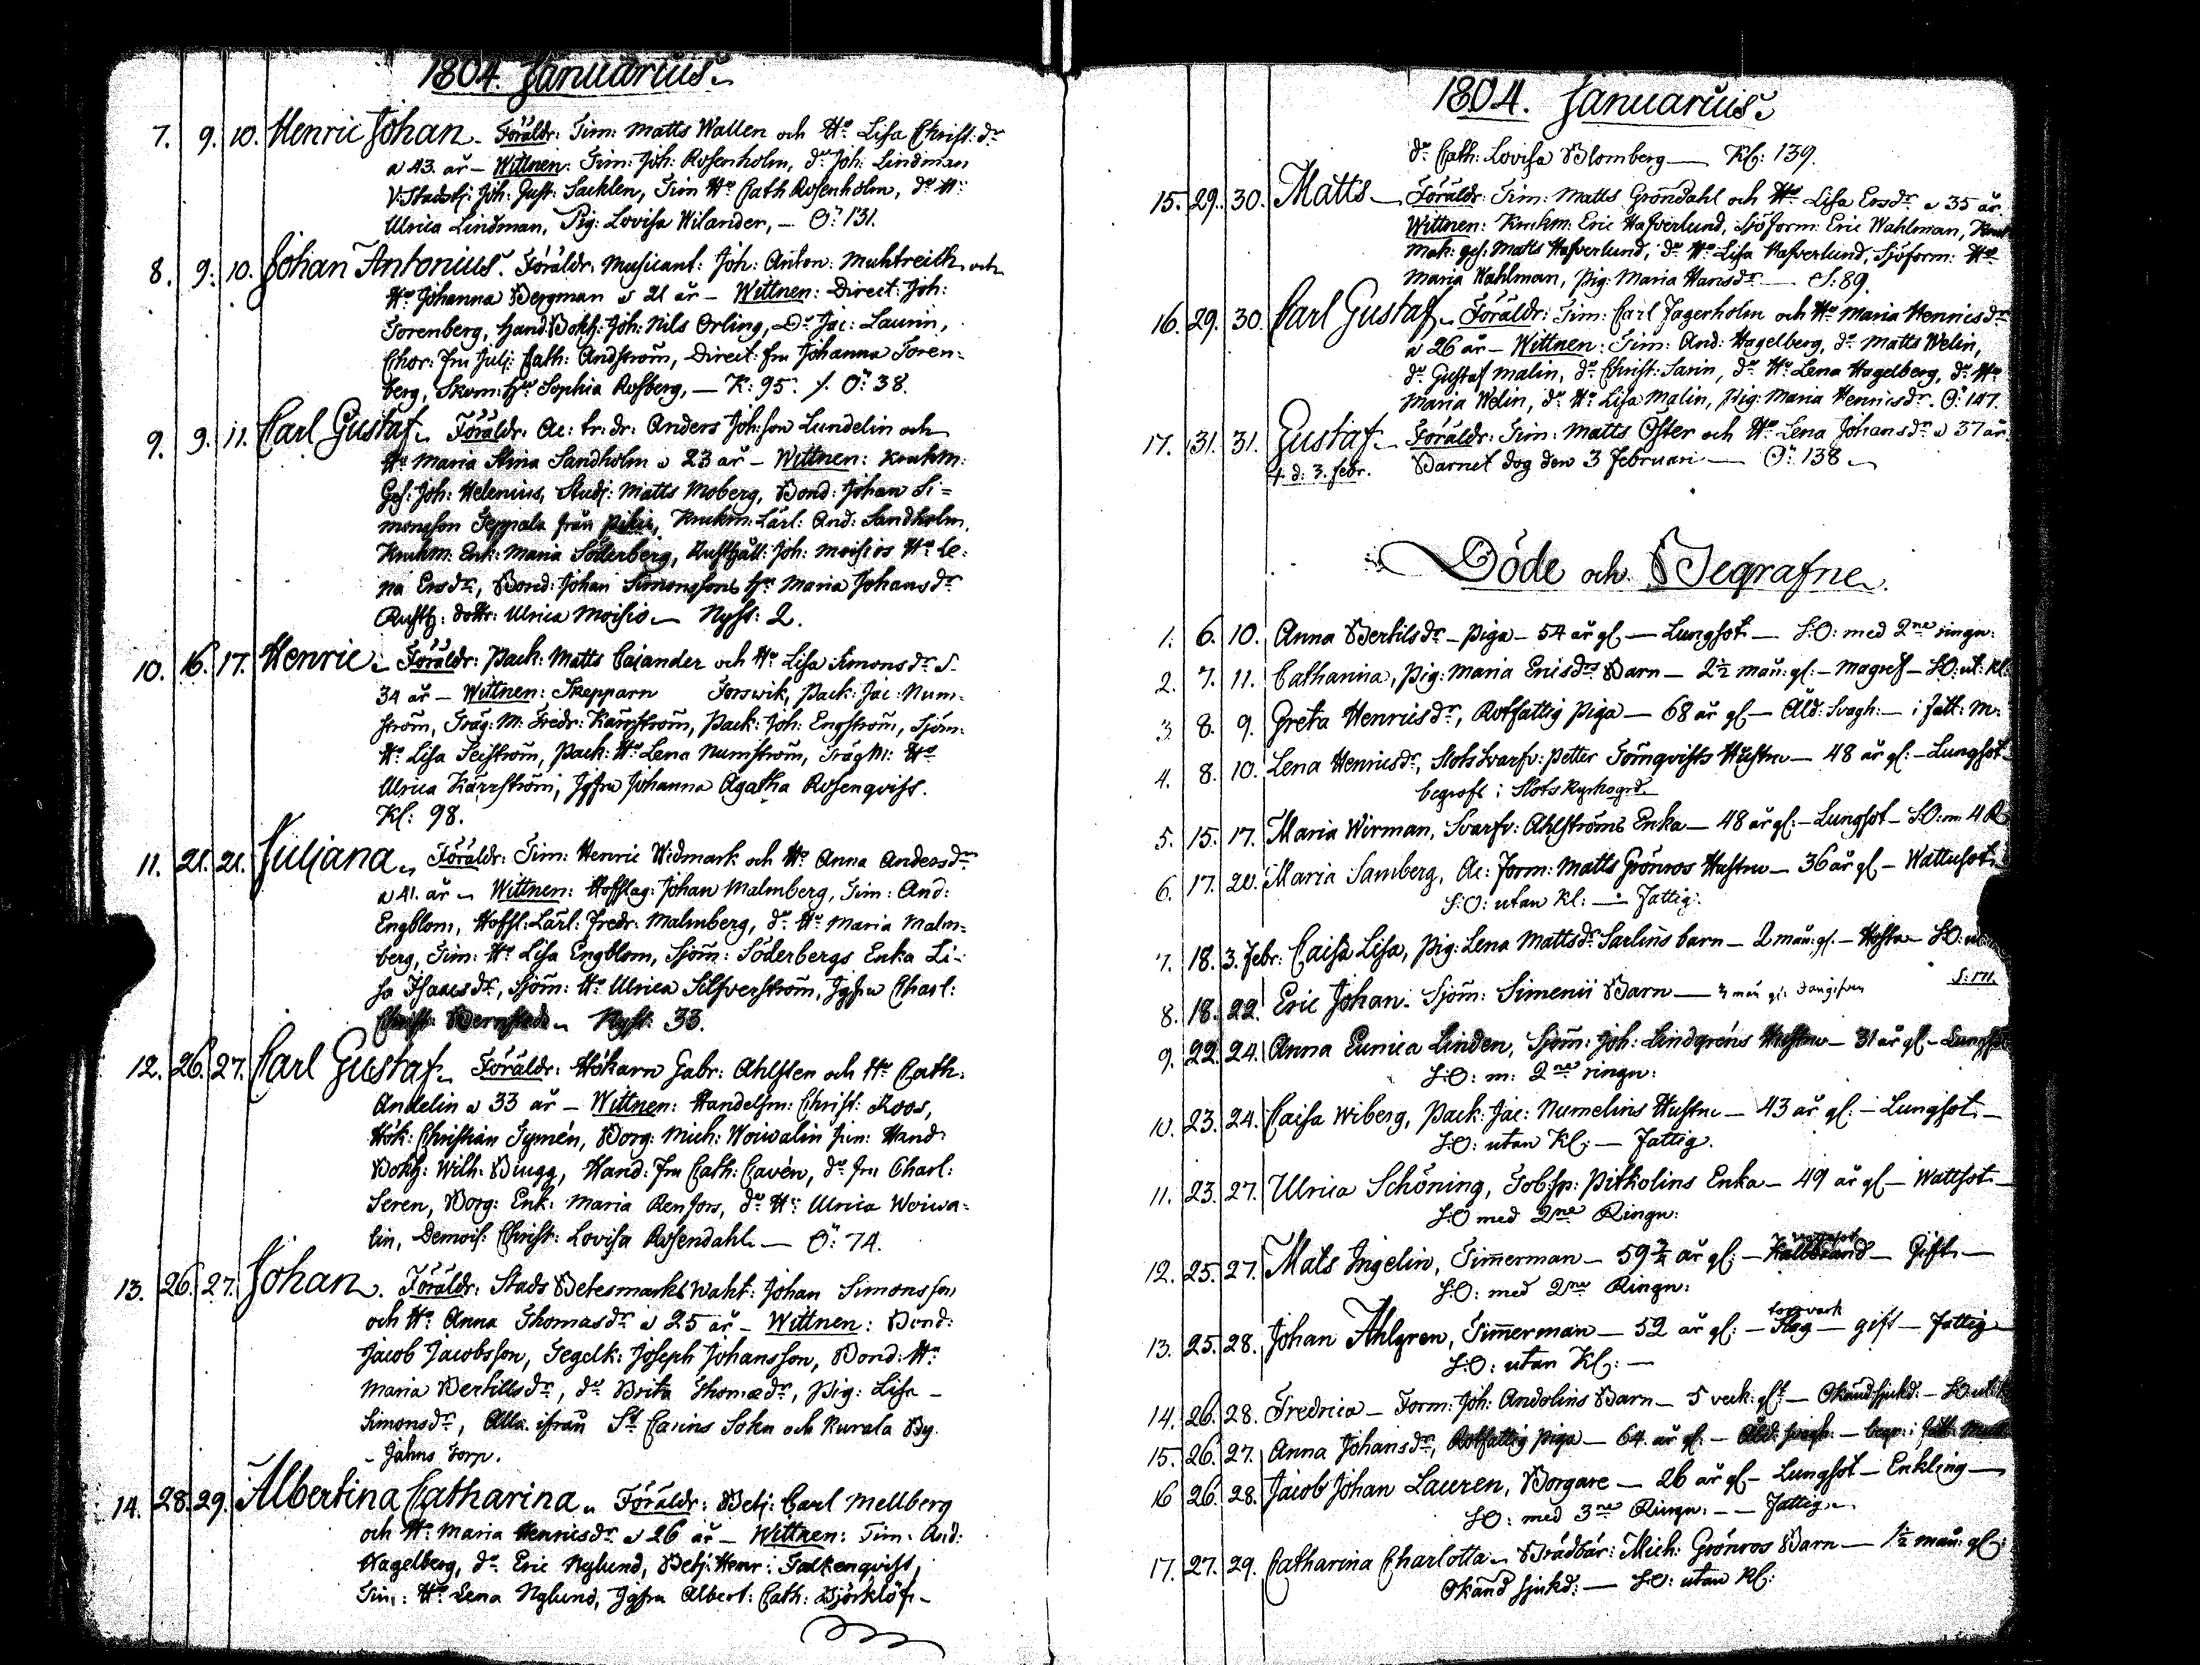 1804. Januarius
7. 9. 10. Henric Johan. Föräldr: Tim: Matts Wallen och Ho Lisa Christ:dr
a 43. år – Wittnen: Tim: Joh: Rosenholm, do Joh: Lindman
V.Stadsfj: Joh: Gust: Sacklen, Tim Ho Cath Rosenholm, do Ho
Ulrica Lindman, Pig: Lovisa Wilander, – Ö: 131.
8. 9. 10. Johan Antonius. Föräldr: Musicant: Joh: Anton: Muhtreich och
Ho Johanna Bergman a 21 år – Wittnen: Direct: Joh:
Torenberg, Hand Bokh: Joh: Nils Orling, Do Jac: Laurin,
Chor: fru Julj: Cath: Andström, Direct: fru Johanna Toren=
berg, Skom: Ho Sophia Rosberg, – K: 95. /. Ö: 38.
9. 9. 11. Carl Gustaf. Föräldr: Ac: tr: dr: Anders Joh:son Lundelin och
Ho Maria Stina Sandholm a 23 år – Wittnen: Krukm:
Ges: Joh: Helenius, Studj: Matts Moberg, Bond: Johan Si=
monsson Seppala från Pikis, Krukm: Lärl: And: Sandholm,
Krukm: Enk: Maria Söderberg, Rusthåll: Joh: Moisios Ho Le:
na Ersdr, Bond: Johan Simonssons Ho Maria Johansdr
Rusth: dottr: Ulrica Moisio – Nyst: 2.
10. 16. 17. Henric. Föräldr: Pack: Matts Caiander och Ho Lisa Simonsdr a
34 år – Wittnen: Skepparn Forswik, Pack: Jac: Num-
ström, Träg: M: Fredr: Kärrström, Pack: Joh: Engström, Sjöm:
Ho Lisa Seiström, Pack: Ho Lena Numström, Träg M: Ho
Ulrica Kärrström, Jgfru Johanna Agatha Rosenqvist.
Kl: 98.
11. 21. 21. Juliana. Föräldr: Tim: Henric Widmark och Ho Anna Andersdr
a 41. år – Wittnen: Hofslag: Johan Malmberg, Tim: And:
Engblom, Hofsl: Lärl: Fredr: Malmberg, do Ho Maria Malm-
berg, Tim: Ho Lisa Engblom, Sjöm: Söderbergs Enka Li-
sa Isaacsdr, Sjöm: Ho Ulrica Silfverström, Jgfru Charl:
Christ: Bernstedt – Nyst: 33.
12. 26. 27. Carl Gustaf. Föräldr: Hökarn Gabr: Ahlsten och Ho Cath:
Andelin a 33 år – Wittnen: Handelsm: Christ: Roos,
Hök: Christian Tymén, Borg: Mich: Woiwalin Jun: Hand
Bokh: Wilh: Brugg, Hand: fru Cath: Cavén, do fru Charl:
Seren, Borg: Enk: Maria Renfors, do Ho Ulrica Woiwa-
lin, Demois: Christ: Lovisa Rosendahl. – Ö: 74.
13. 26. 27. Johan. Föräldr: Stads Betesmarks Wakt: Johan Simonsson
och Ho Anna Thomasdr a 25 år – Wittnen: Bond:
Jacob Jacobsson, Tegelk: Joseph Johansson, Bond: Ho
Maria Bertilsdr, do Brita Thomædr, Pig: Lisa
Simonsdr, Alla ifrån St Carins Sokn och Kurala By
Jahns Torp.
14. 28. 29. Albertina Catharina. Föräldr: Betj: Carl Mellberg
och Ho Maria Henricsdr a 26 år – Wittnen: Tim: And:
Hagelberg, do Eric Nylund, Betj: Henr: Falkenqvist,
Tim: Ho Lena Nylund, Jgfru Albert: Cath: Björklöf –
1804. Januarius
do Cath: Lovisa Blomberg – Kl: 139.
15. 29. 30. Matts – Föräldr: Tim: Matts Gröndahl och Ho Lisa Ersdr a 35 år
Wittnen: Krukm: Eric Hafverlund, Sjöform: Eric Wahlman, Kruk
mak: ges: Matts Hafverlund, do Ho Lisa Hafverlund, Sjöform: Ho
Maria Wahlman, Pig: Maria Hansdr – S: 89.
16. 29. 30. Carl Gustaf. Föräldr: Tim: Carl Jagerholm och Ho Maria Henricsdr
a 26 år – Wittnen: Tim: And: Hagelberg, do Matts Welin,
do Gustaf Malin, do Christ: Sarin, do Ho Lena Hagelberg, do Ho
Maria Welin, do Ho Lisa Malin, Pig: Maria Henricsdr. Ö: 147.
17. 31. 31. Gustaf – Föräldr: Tim: Matts Öster och Ho Lena Johansdr a 37 år
† d: 3. febr. Barnet dog den 3 Februari – Ö: 138
Döde och Begrafne.
1. 6. 10. Anna Bertilsdr – Piga – 54 år gl – Lungsot – S:O: med 2ne ringn:
2. 7. 11. Catharina, Pig: Maria Ericsdrs Barn – 2½ mån: gl: – Magref – S:O: ut: Kl:
3 8. 9. Greta Henricsdr, Rotfattig Piga – 68 år gl – Åld: Svagh: – i fatt: M:
4. 8. 10. Lena Henricsdr, Slots Svarfv: Petter Törnqvists Hustru – 48 år gl: – Lungsot
begrofs i Slots Kyrkogrd
5. 15. 17. Maria Wirman, Svarfv: Ahlströms Enka – 48 år gl: – Lungsot – S:O: m: 4 R
6. 17. 20. Maria Samberg, Ac: Form: Matts Grönroos Hustru – 36 år gl – Wattusot
S:O: utan Kl: – Fattig.
7. 18. 3. Febr: Caisa Lisa, Pig: Lena Mattsdr Sarlins barn – 2 mån: gl: – Hosta – S:O:
8. 18. 22. Eric Johan. Sjöm: Simenii Barn –
9. 22. 24. Anna Eunica Linden, Sjöm: Joh: Lindgréns Hustru – 31 år gl – Lungsot
S:O: m: 2ne ringn:
10. 23. 24. Caisa Wiberg, Pack: Jac: Numelins Hustru – 43 år gl: – Lungsot –
S:O: utan Kl: – Fattig.
11. 23. 27. Ulrica Schöning, Tob:sp: Pitkolins Enka – 49 år gl – Wattsot –
S:O med 2ne Ringn:
12. 25. 27. Mats Ingelin, Timmerman – 59¾ år gl: – Kallbrand – Gift –
S:O: med 2ne Ringn:
13. 25. 28. Johan Ahlgren, Timmerman – 52 år gl: – Slag – gift – Fattig
S:O: utan Kl: –
14. 26. 28. Fredrica – Form: Joh: Andolins Barn – 5 veck: gl: – Okänd sjukd: –
15. 26. 27. Anna Johansdr, Rotfattig Piga – 64 år gl: – Åld: svagh: – begr: i fatt:
16 26. 28. Jacob Johan Lauren, Borgare – 26 år gl – Lungsot – Enkling –
S:O: med 3ne Ringn: – – Fattig
17. 27. 29. Catharina Charlotta – Brädbär: Mich: Grönroos Barn – 1½ mån: gl:
Okänd sjukd: – S:O: utan Kl: